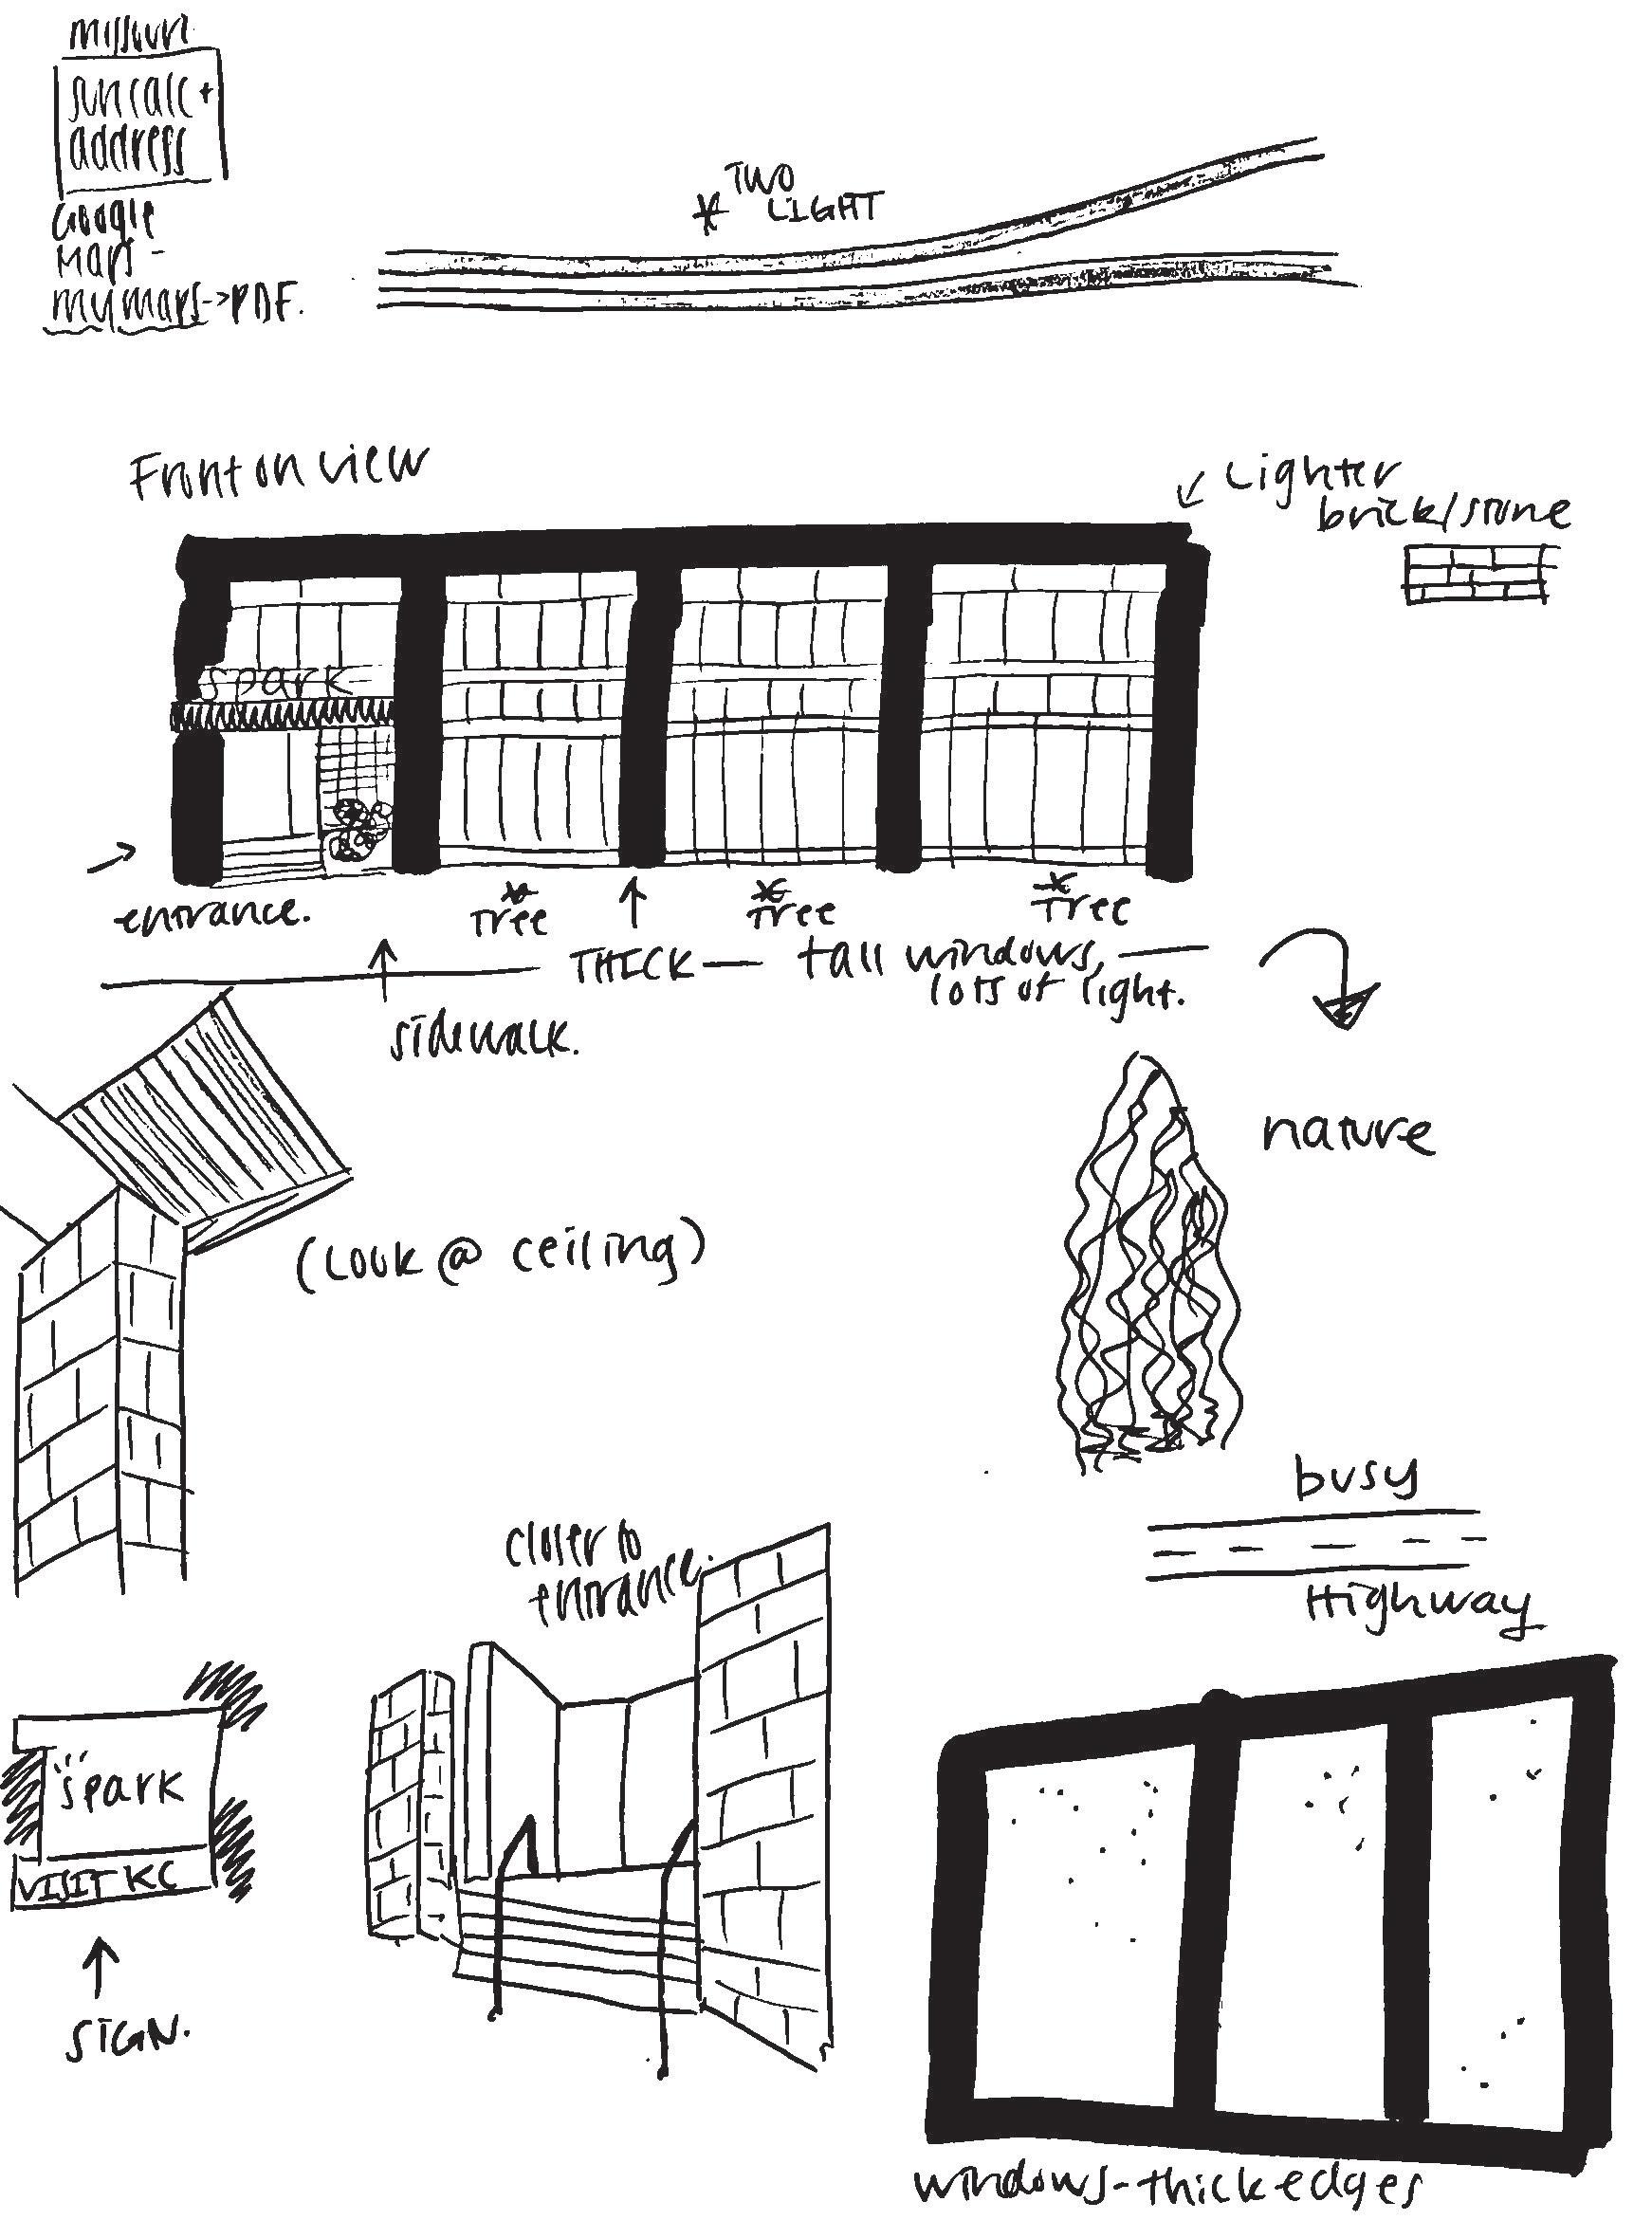 missouri
suncalc +
address
Google
Maps -
mymaps->PDF.
* TWO
LIGHT
Front on view
Lighter
brick/stone
SPARK
entrance.
* Tree
* Tree
* Tree
THICK — tall windows, —
lots of light.
sidewalk.
nature
(LOOK @ ceiling)
busy
Highway
closer to
entrance.
spark
VISIT KC
SIGN.
windows-thick edges